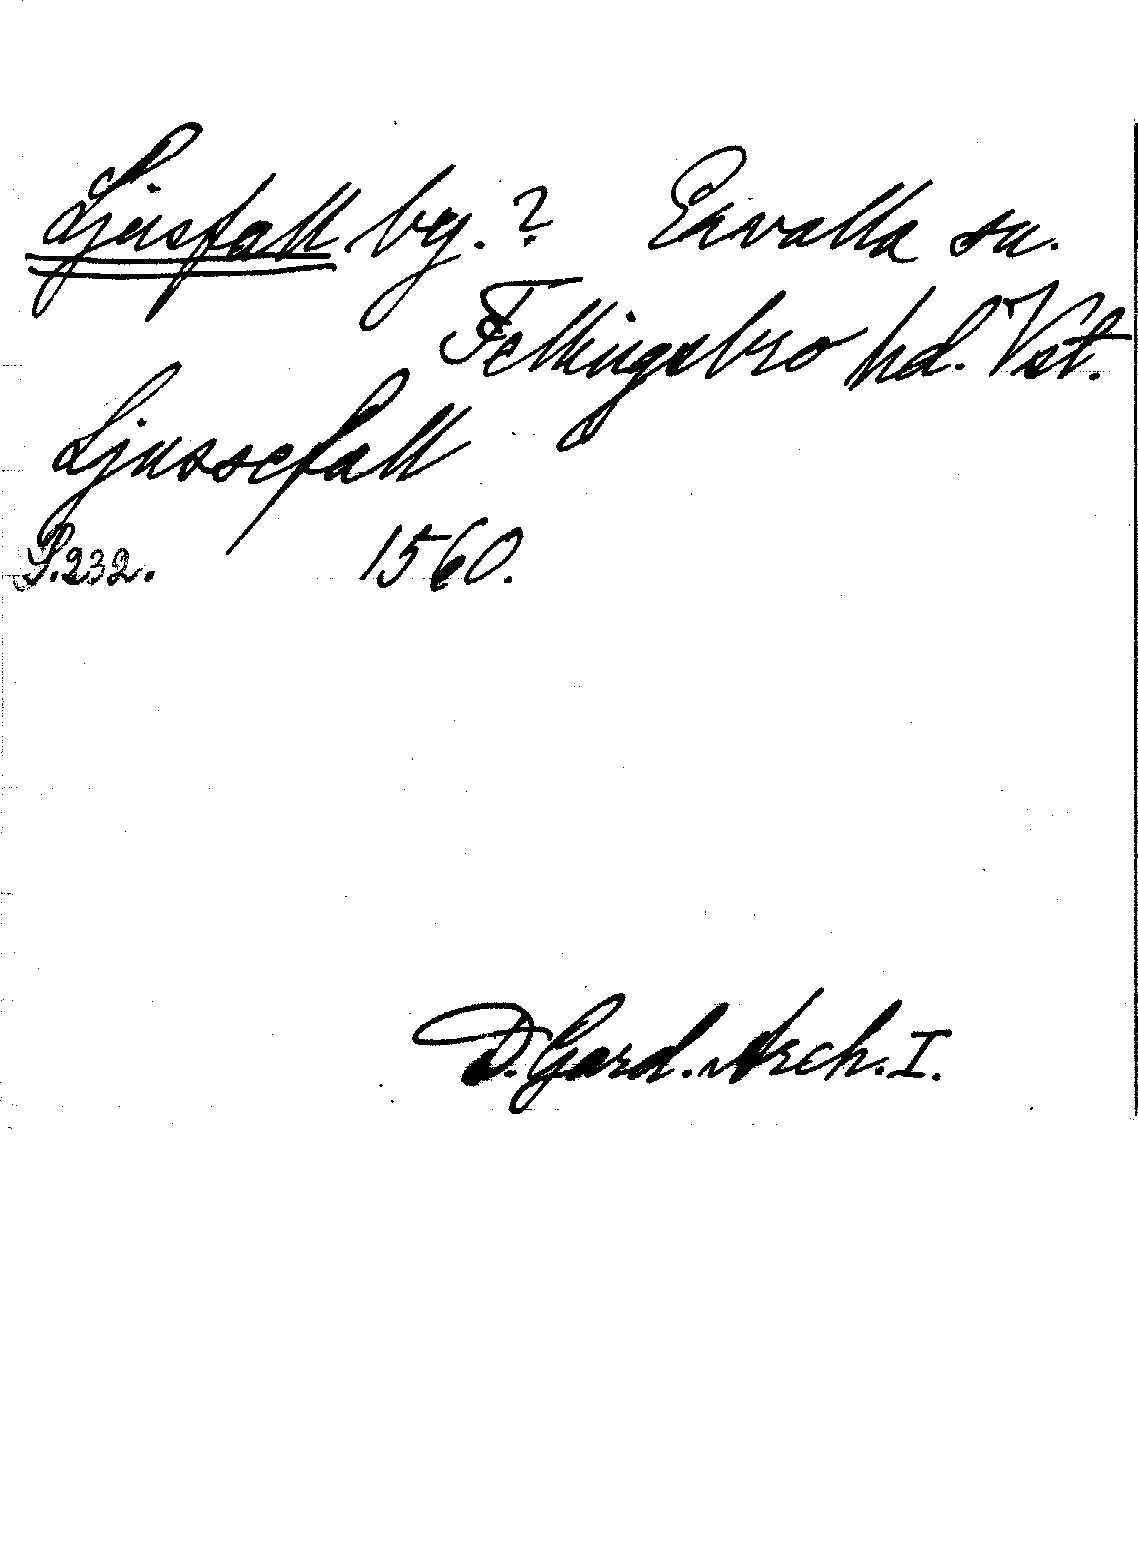 Ljusfall by. ? Ervalla sn.
Fellingsbro hd. Vst.
Ljussefall
S. 232. 1560.
D. Gard. Arch. I.